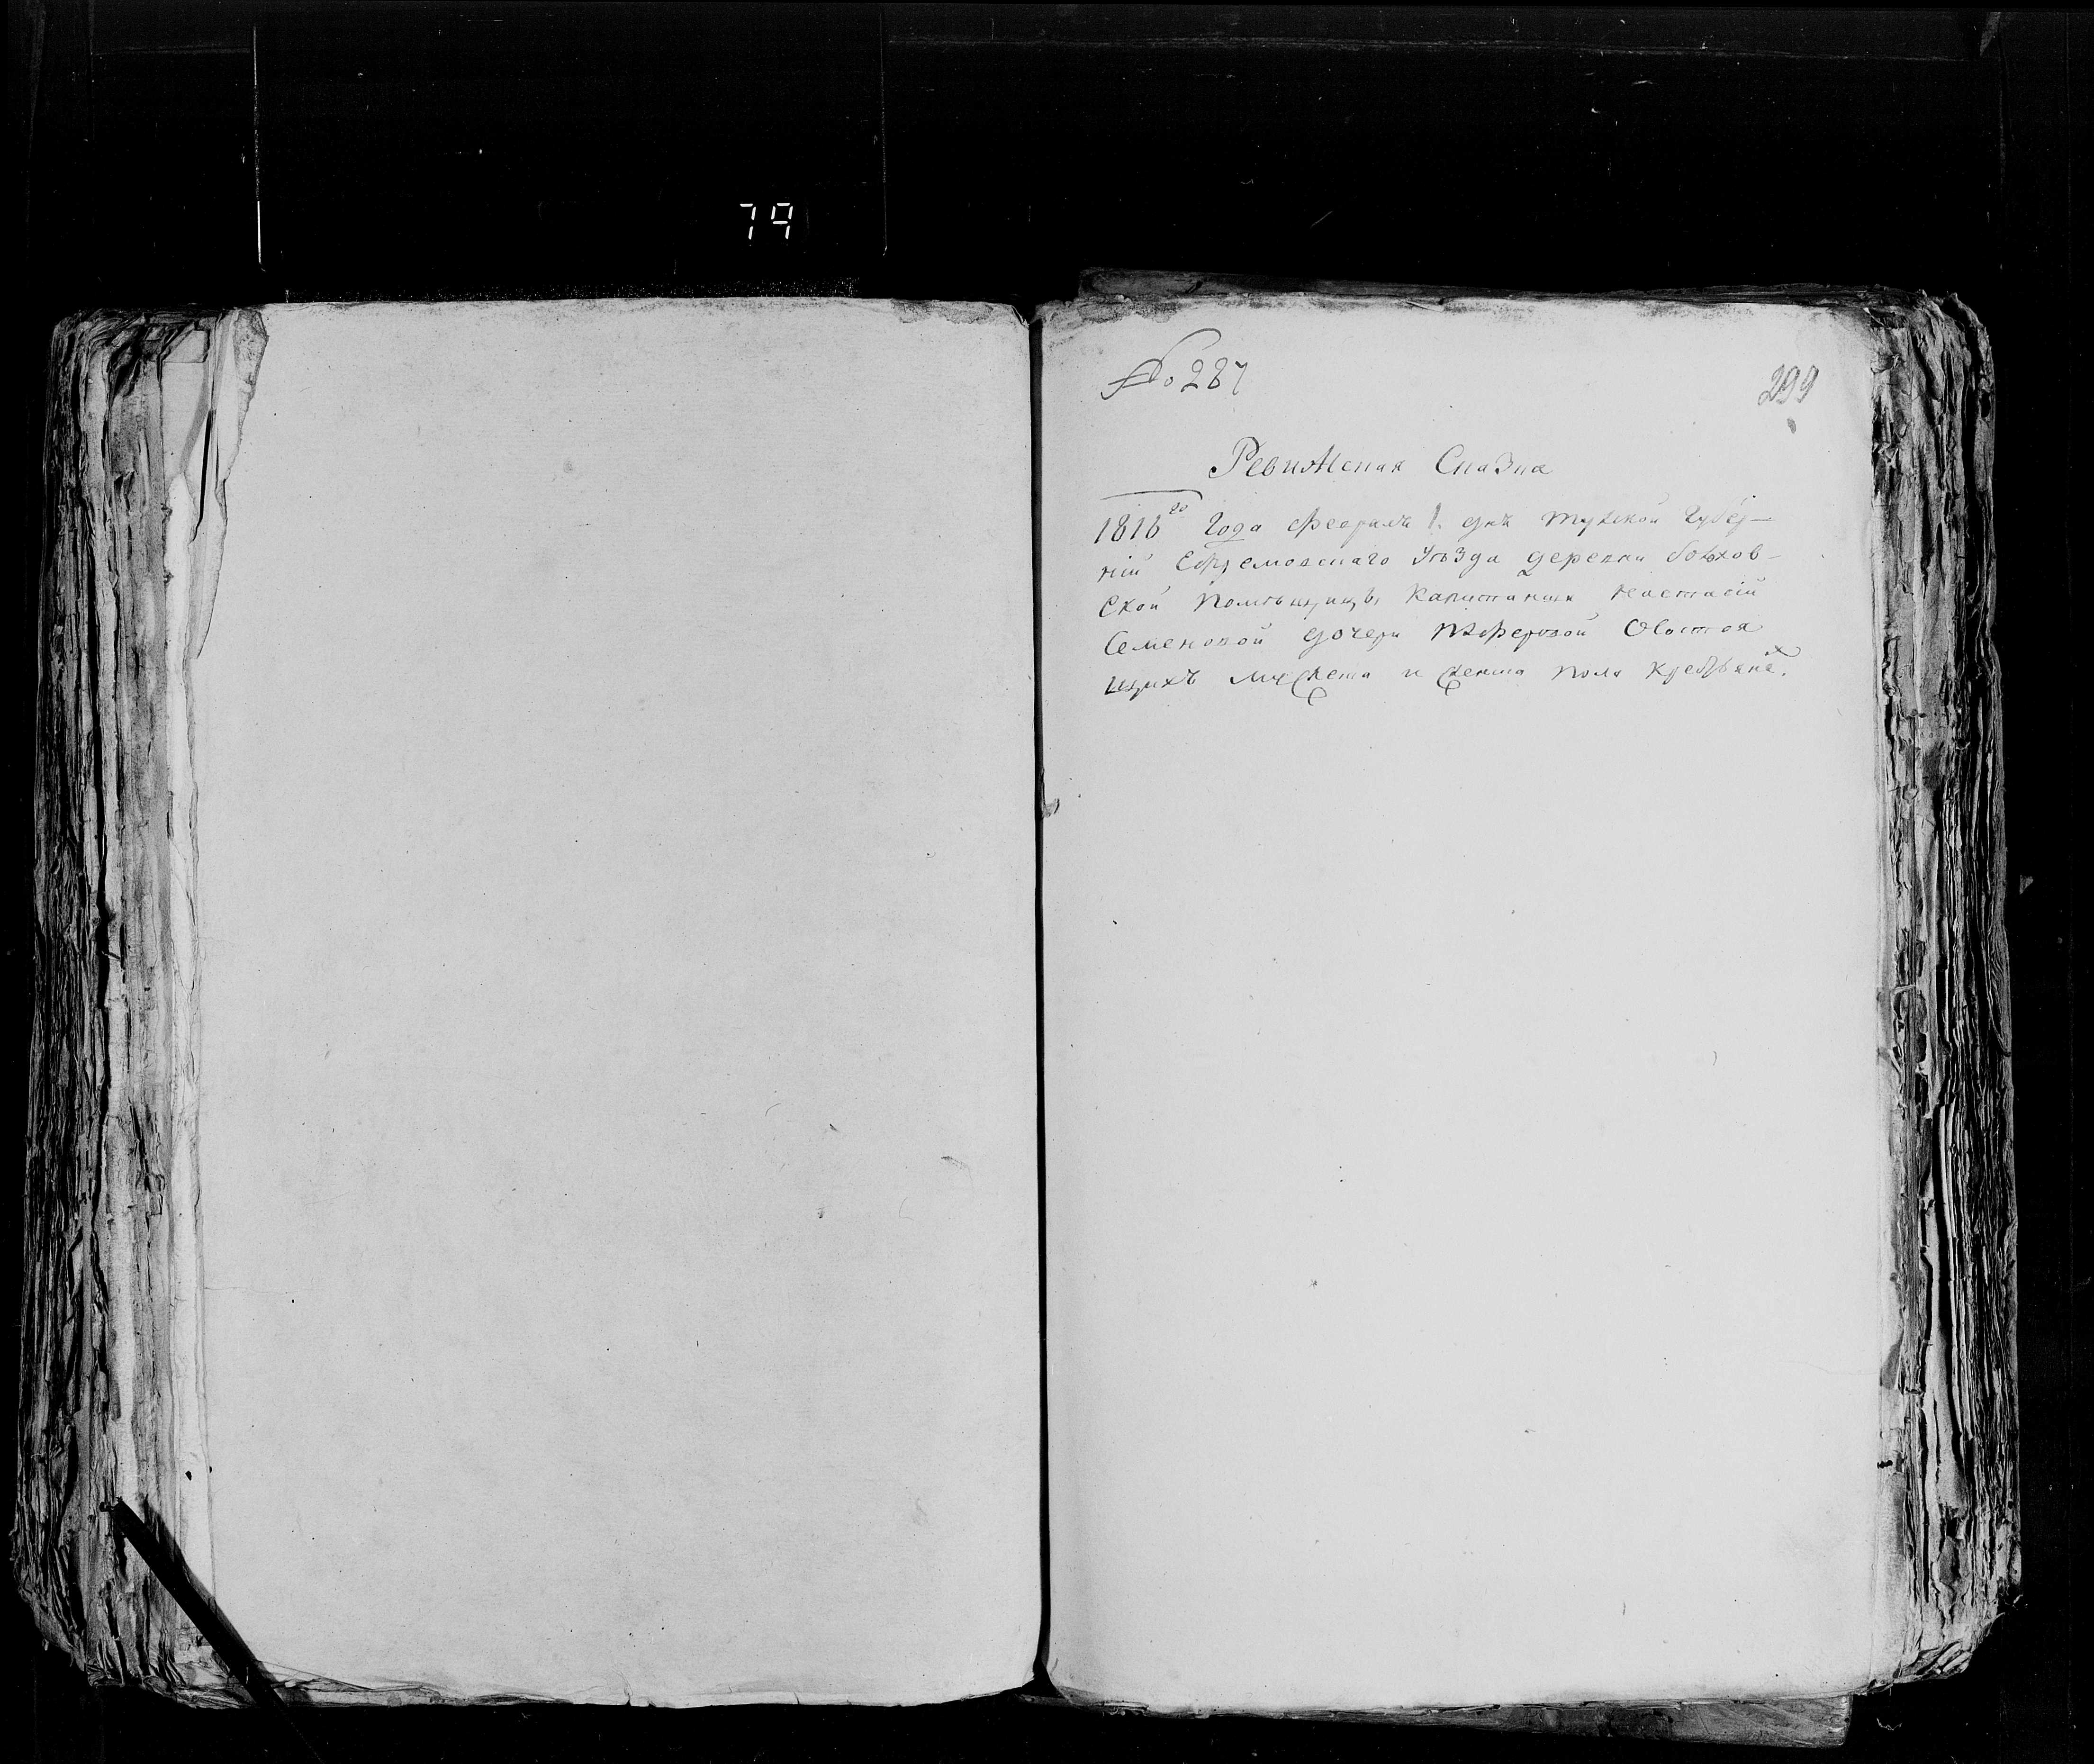 79
№ 287
299
Ревижская Сказка
1816го Года февраля 1. дня тулской Губер—
ніи Ефремовскаго Уѣзда деревни
ской помѣщицы Капитанши Настасіи
Семеновой дочери О состоя
щихъ мужеска и женска пола крестьянех.